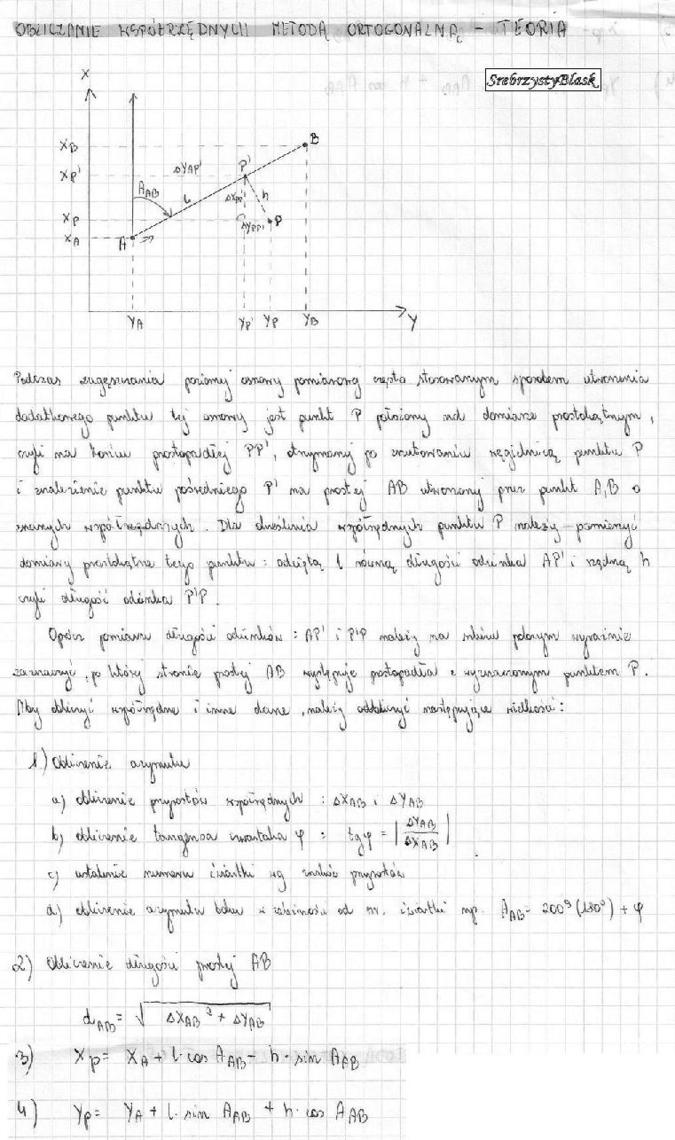 OBLICZANIE WSPÓŁRZĘDNYCH METODĄ ORTOGONALNĄ - TEORIA
SrebrzystyBlask
X
XB
B
XP'
ΔYAP'
P'
AAB
l
ΔXPP'
h
XP
ΔYPP'
P
XA
A
YA
YP'
YP
YB
Y
Podczas zagęszczania poziomej osnowy pomiarowej często stosowanym sposobem utworzenia
dodatkowego punktu tej osnowy jest punkt P położony na domiarze prostokątnym,
czyli na końcu prostopadłej PP', otrzymanej po zrzutowaniu węgielnicą punktu P
i znalezienie punktu pośredniego P' na prostej AB utworzonej przez punkt A,B o
znanych współrzędnych. Dla określenia współrzędnych punktu P należy pomierzyć
domiary prostokątne tego punktu: odciętą l równą długości odcinka AP' i rzędną h
czyli długość odcinka P'P.
Oprócz pomiaru długości odcinków: AP' i P'P należy na szkicu polowym wyraźnie
zaznaczyć, po której stronie prostej AB występuje prostopadła z wyznaczonym punktem P.
Aby obliczyć współrzędne i inne dane, należy obliczyć następujące wielkości:
1) Obliczenie azymutu
a) obliczenie przyrostów współrzędnych: ΔXAB i ΔYAB
b) obliczenie tangensa czwartaka φ: tgφ = |ΔYAB/ΔXAB|
c) ustalenie numeru ćwiartki wg znaków przyrostów
d) obliczenie azymutu boku w zależności od nr. ćwiartki np. AAB = 200g (180°) + φ
2) Obliczenie długości prostej AB
dAB = √ΔXAB² + ΔYAB
3) XP = XA + l·cos AAB - h·sin AAB
4) YP = YA + l·sin AAB + h·cos AAB